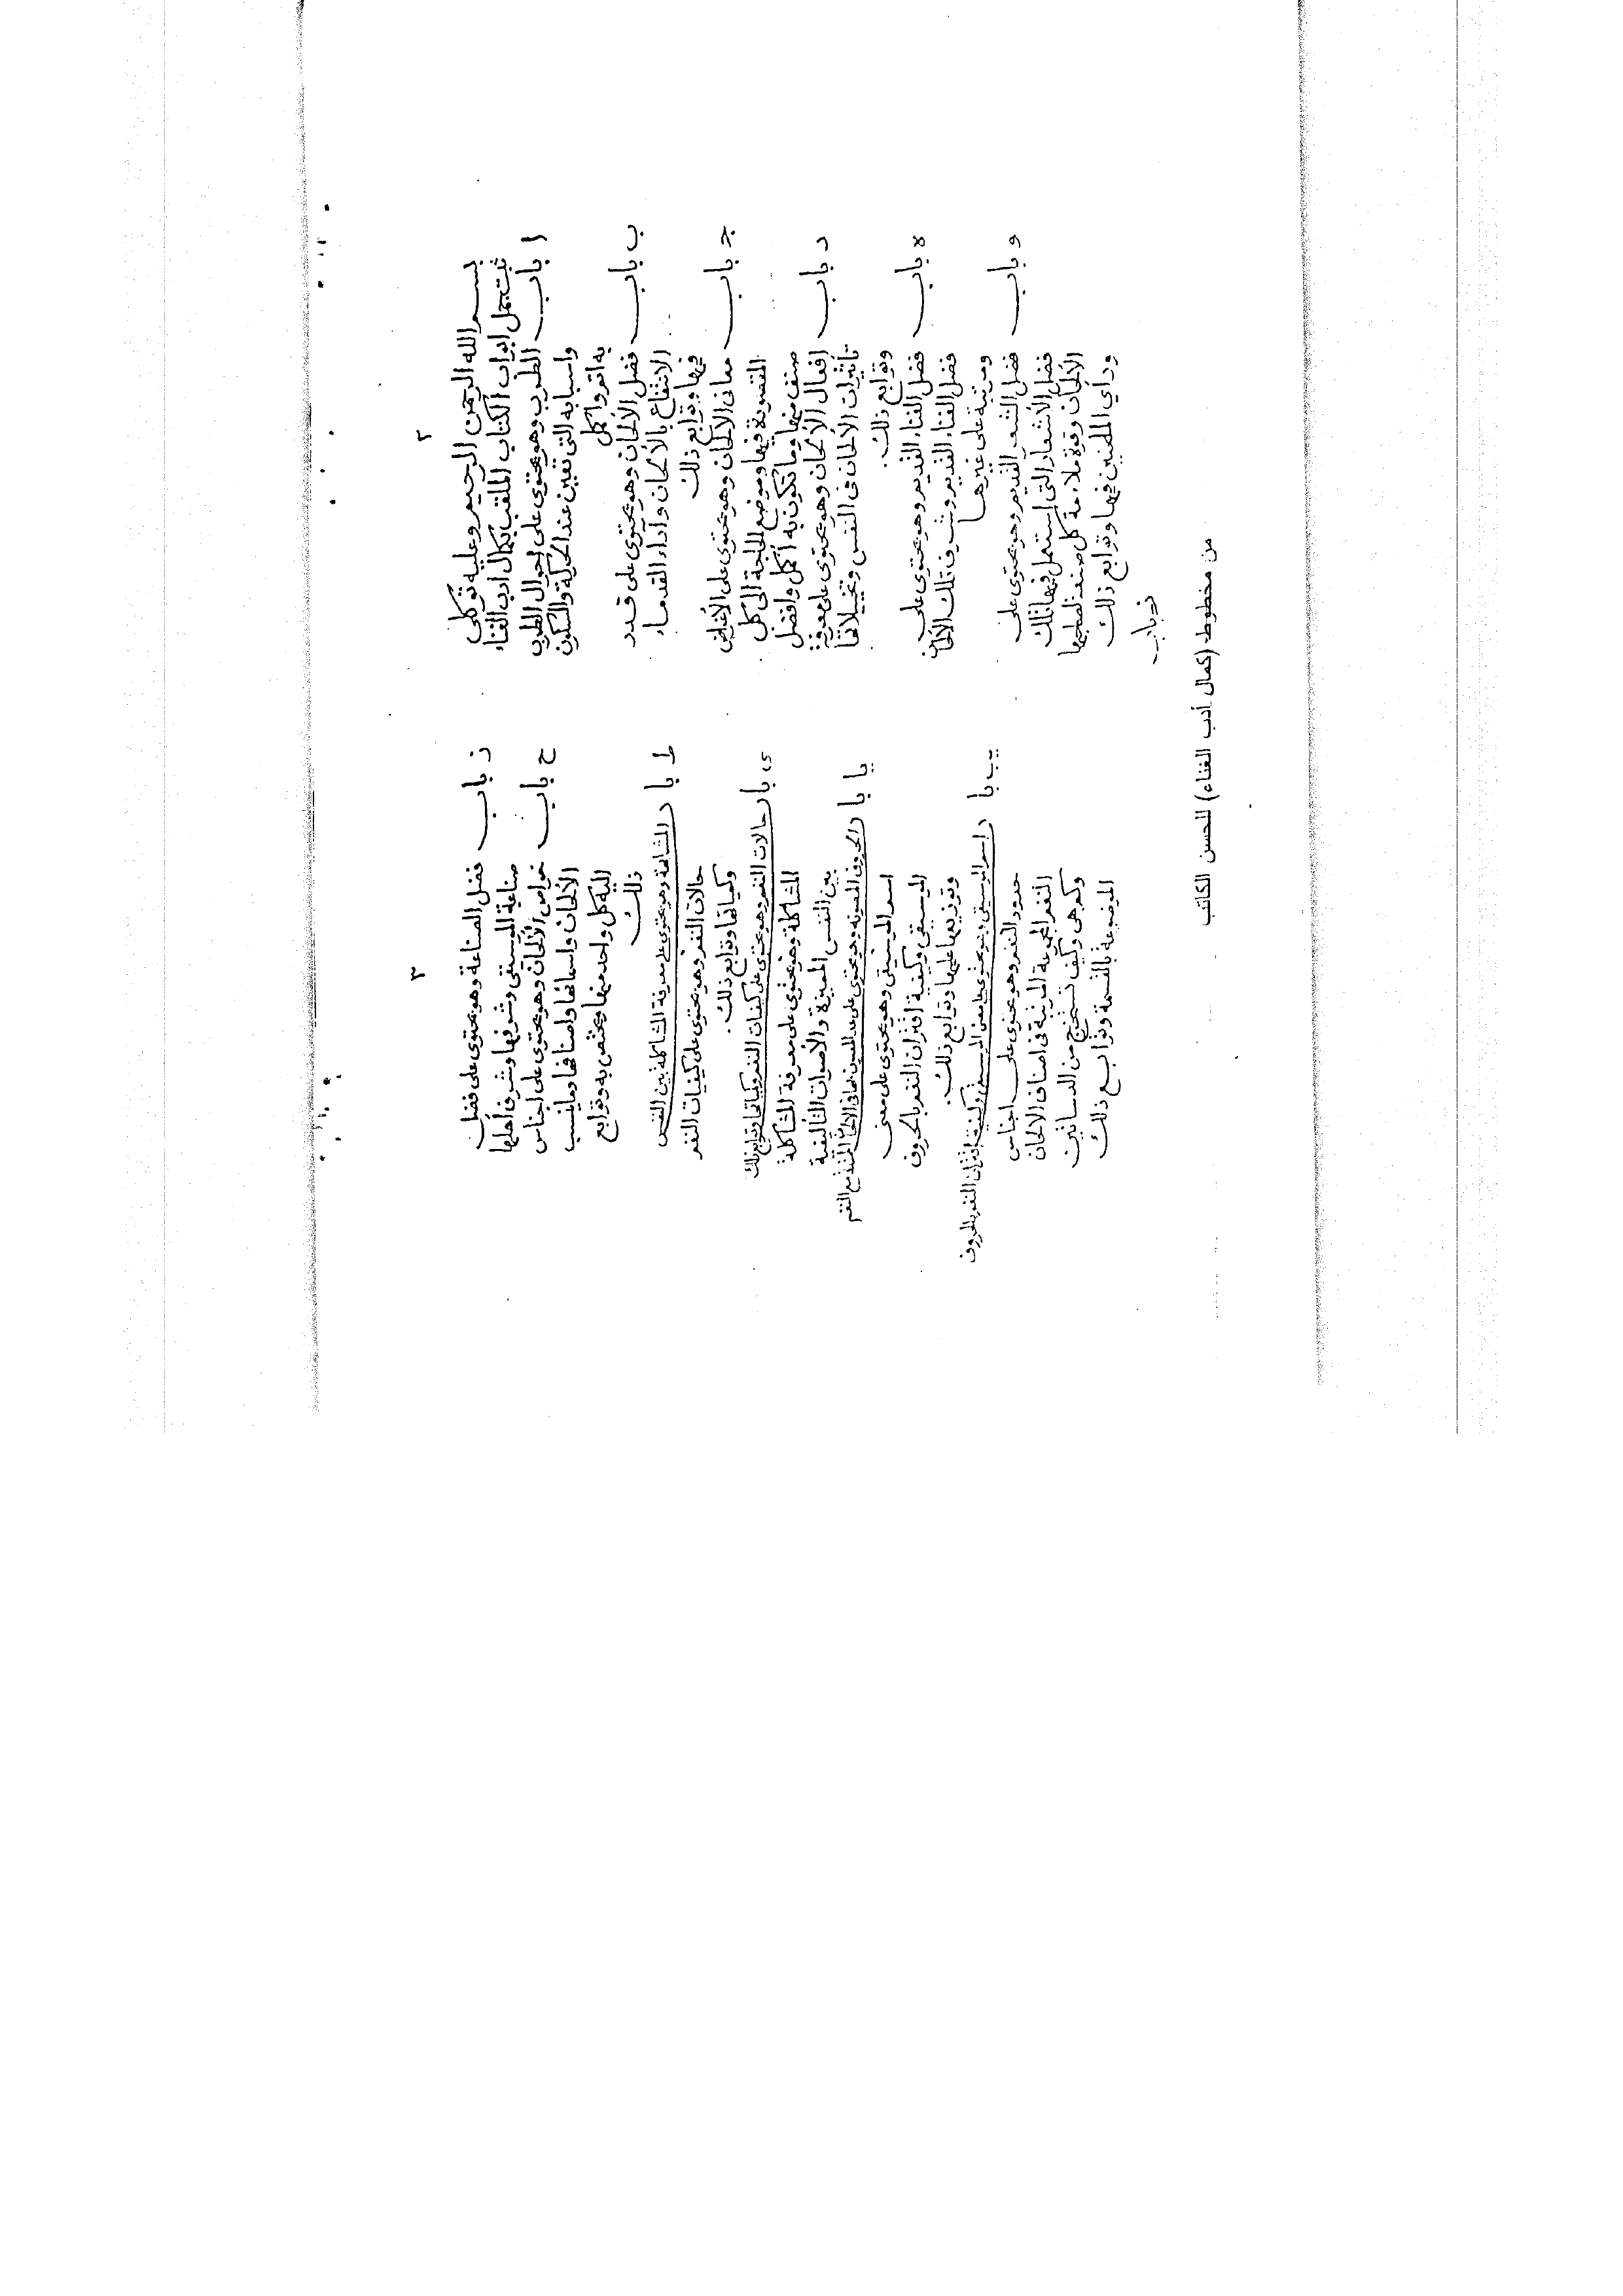 ٢
بسم الله الرحمن الرحيم وعليه توكلى
ثبت جمل ابواب الكتاب الملقب بكمال ادب الغناء
ا باب الطرب وهو يحتوى على احوال الطرب
واسبابه التى تعين عند الحركة والسكون
به اتم واكمل
ب باب فضل الألحان وهو يحتوى على قدر
الانتفاع بالألحان واراء القدماء
فيها وتوابع ذلك
ج باب معانى الالحان وهو يحتوى على الأغراض
المقصودة فيها وموضع الحاجة الى كل
صنف منها وما تكون به أكمل وافضل
د باب افعال الألحان وهو يحتوى على معرفة
تأثيرات الألحان فى النفس وتخييلاتها
وتوابع ذلك.
ه باب فضل الغناء القديم وهو يحتوى على
فضل الغناء القديم وشرف تلك الألحان
ومرتبة على غيرها
و باب فضل الشعر القديم وهو يحتوى على
فضل الأشعار التى استعمل فيها تلك
الألحان وقوة ملاءمة كل صنف لصاحبها
ورأي الملحنين فيها وتوابع ذلك
ز باب
٣
ز باب فضل الصناعة وهو يحتوى على فضل
صناعة الموسيقى وشرفها وشرف أهلها
ح باب خواص الألحان وهو يحتوى على اجناس
الألحان واسمائها واصنافها وما ينسب
اليه كل واحد منها ويختص به وتوابع
ذلك
ط با المشاكلة وهو يحتوى على معرفة المشاكلة بين النفس
حالات النغم وهو يحتوى على كيفيات النغم
وكمياتها وتوابع ذلك.
ى با حالات النغم وهو يحتوى على كيفيات النغم وكمياتها وتوابع ذلك
المشاكلة وهو يحتوى على معرفة المشاكلة
بين النفس المميزة والأصوات التأليفية
يا با الحروف المصوتة وهو يحتوى على
اسم الموسيقى وهو يحتوى على معنى
الموسيقى وكيفية اقتران النغم بالحروف
وتوزيعها عليها وتوابع ذلك.
يب با اسم الموسيقى وهو يحتوى على معنى الموسيقى وكيفية اقتران النغم بالحروف
حدود النغم وهو يحتوى على اجناس
النغم المجموعة المرتبة فى اصناف الالحان
وكم هى وكيف تستخرج من الدساتين
الموضوعة بالقسمة وتوابع ذلك
من مخطوط (كمال أدب الغناء) للحسن الكاتب